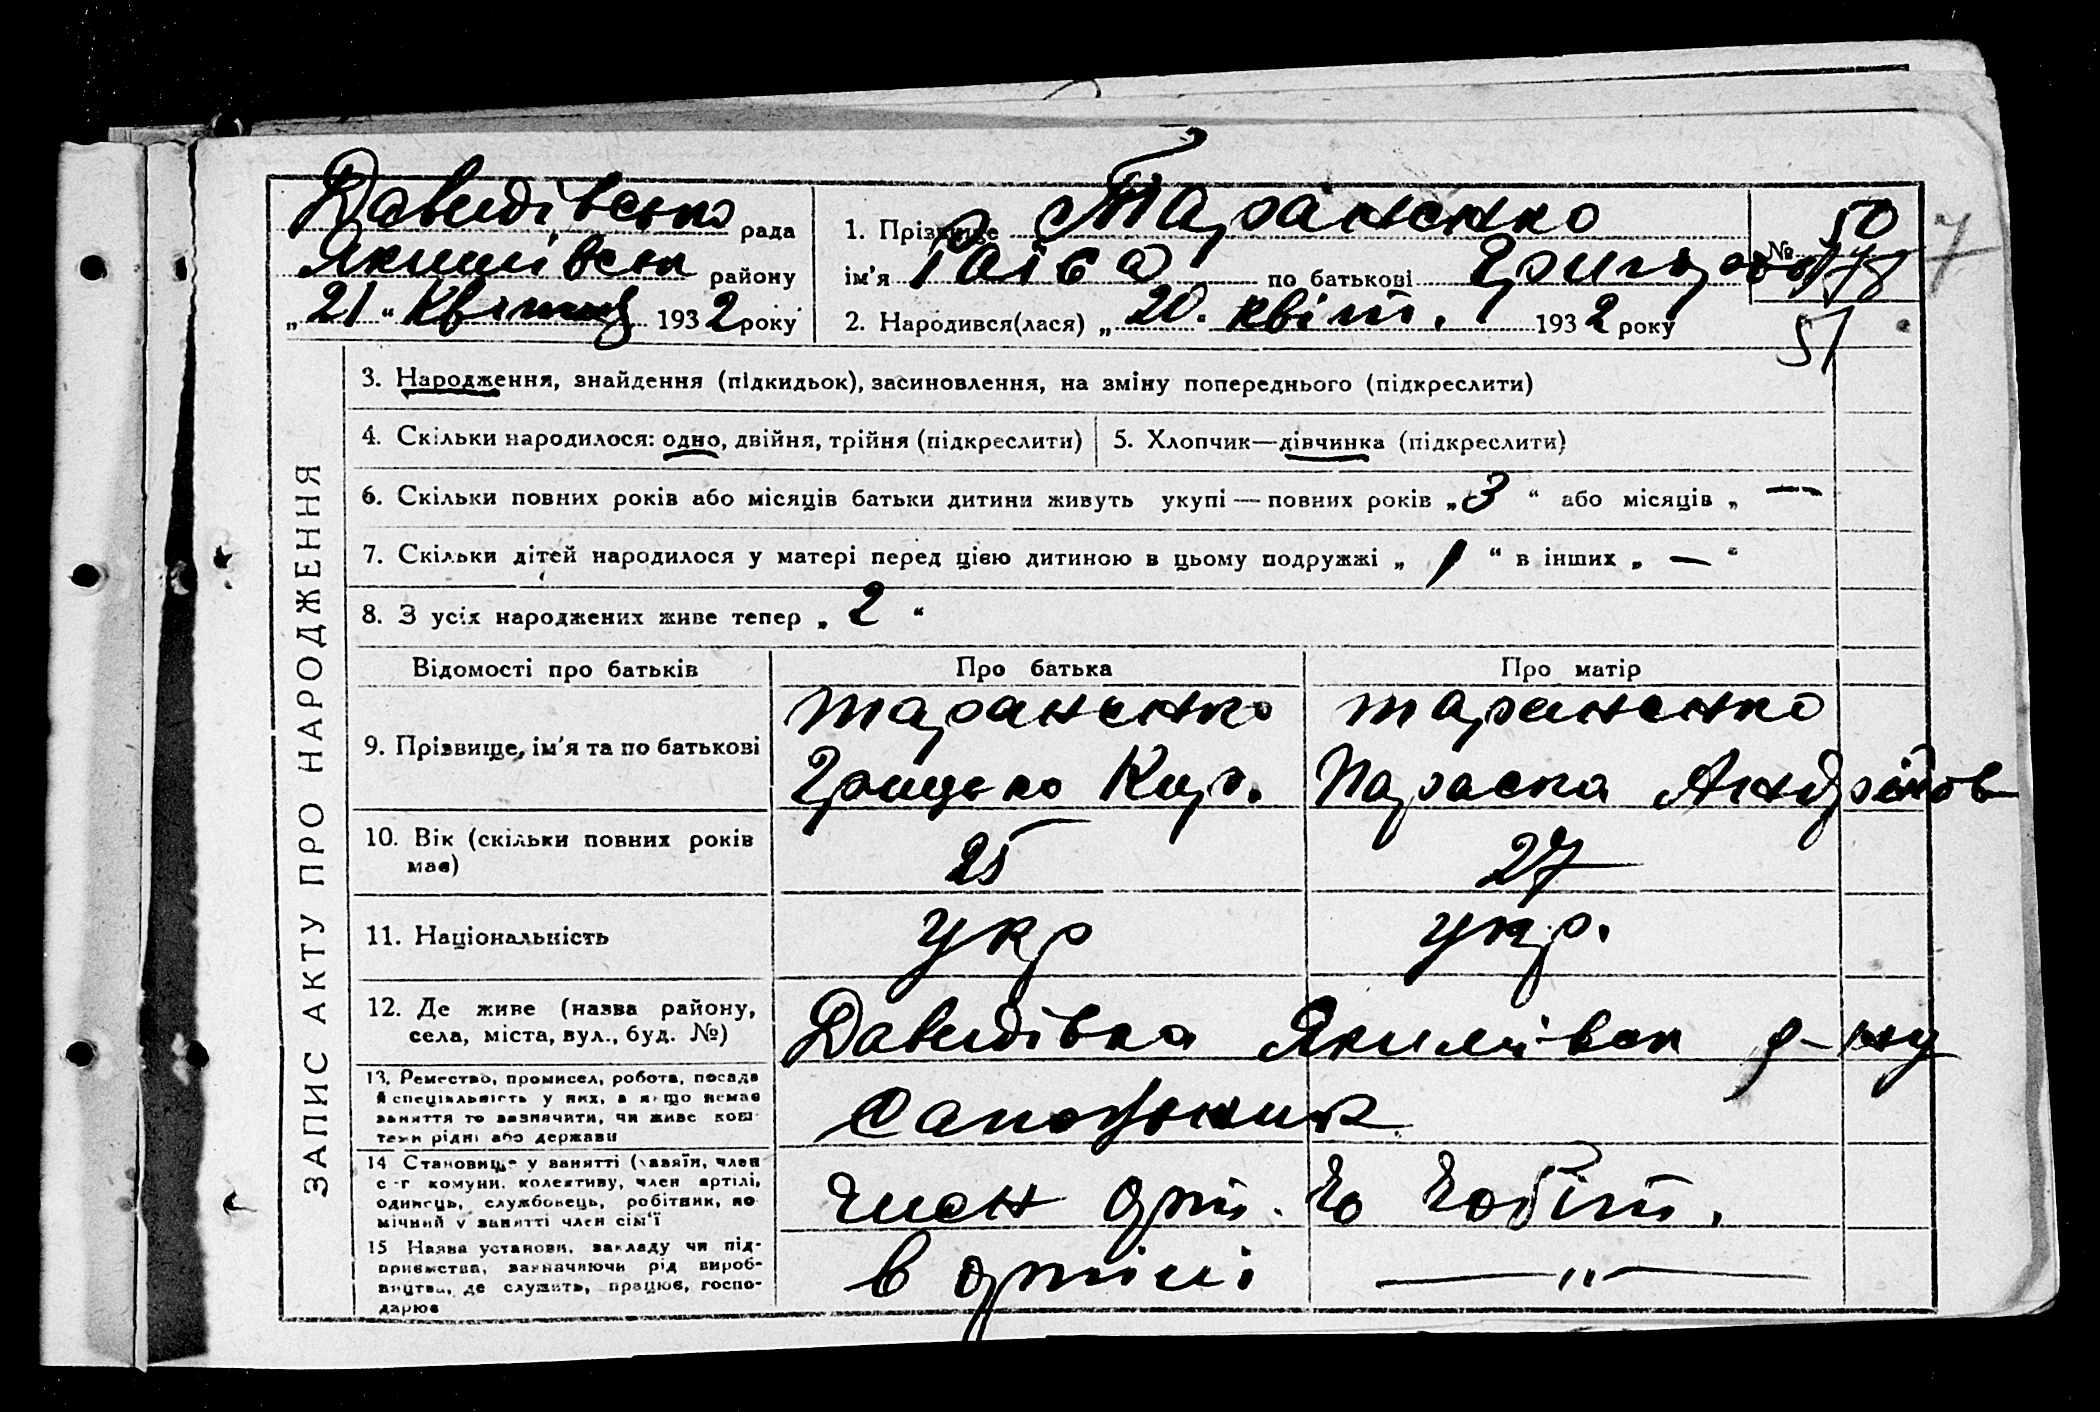 Давидівсько рада
Якимівськ району
„21“ Квітня 1932 року
1. Прізвище Тараненко
ім'я Раїса по батькові Григоров
2. Народився(лася) „20. квіт. 1932 року
№
50
51
7
ЗАПИС АКТУ ПРО НАРОДЖЕННЯ
3. Народження, знайдення (підкидьок), засиновлення, на зміну попереднього (підкреслити)
4. Скільки народилося: одно, двійня, трійня (підкреслити)
5. Хлопчик—дівчинка (підкреслити)
6. Скільки повних років або місяців батьки дитини живуть укупі — повних років „3“ або місяців „ —
7. Скільки дітей народилося у матері перед цією дитиною в цьому подружжі „ 1 “ в інших „ — “
8. З усіх народжених живе тепер „ 2 “
Відомості про батьків Про батька Про матір
9. Прізвище, ім'я та по батькові
Тараненко
Грицько Кир.
Тараненко
Параска Андріїов
10. Вік (скільки повних років має) 25 27
11. Національність укр укр.
12. Де живе (назва району, села, міста, вул., буд. №)
Давидівка Якимівськ р-ну
13. Ремество, промисел, робота, посада й спеціальність у них, а якщо немає заняття то зазначити, чи живе коштами рідні або держави
14 Становище у занятті (хазяїн, член с-г комуни, колективу, член артілі, одинець, службовець, робітник, помічний у занятті член сім'ї
член арт.
15 Назва установи, закладу чи підприємства, зазначаючи рід виробництва, де служить, працює, господарює
в артілі — „ —